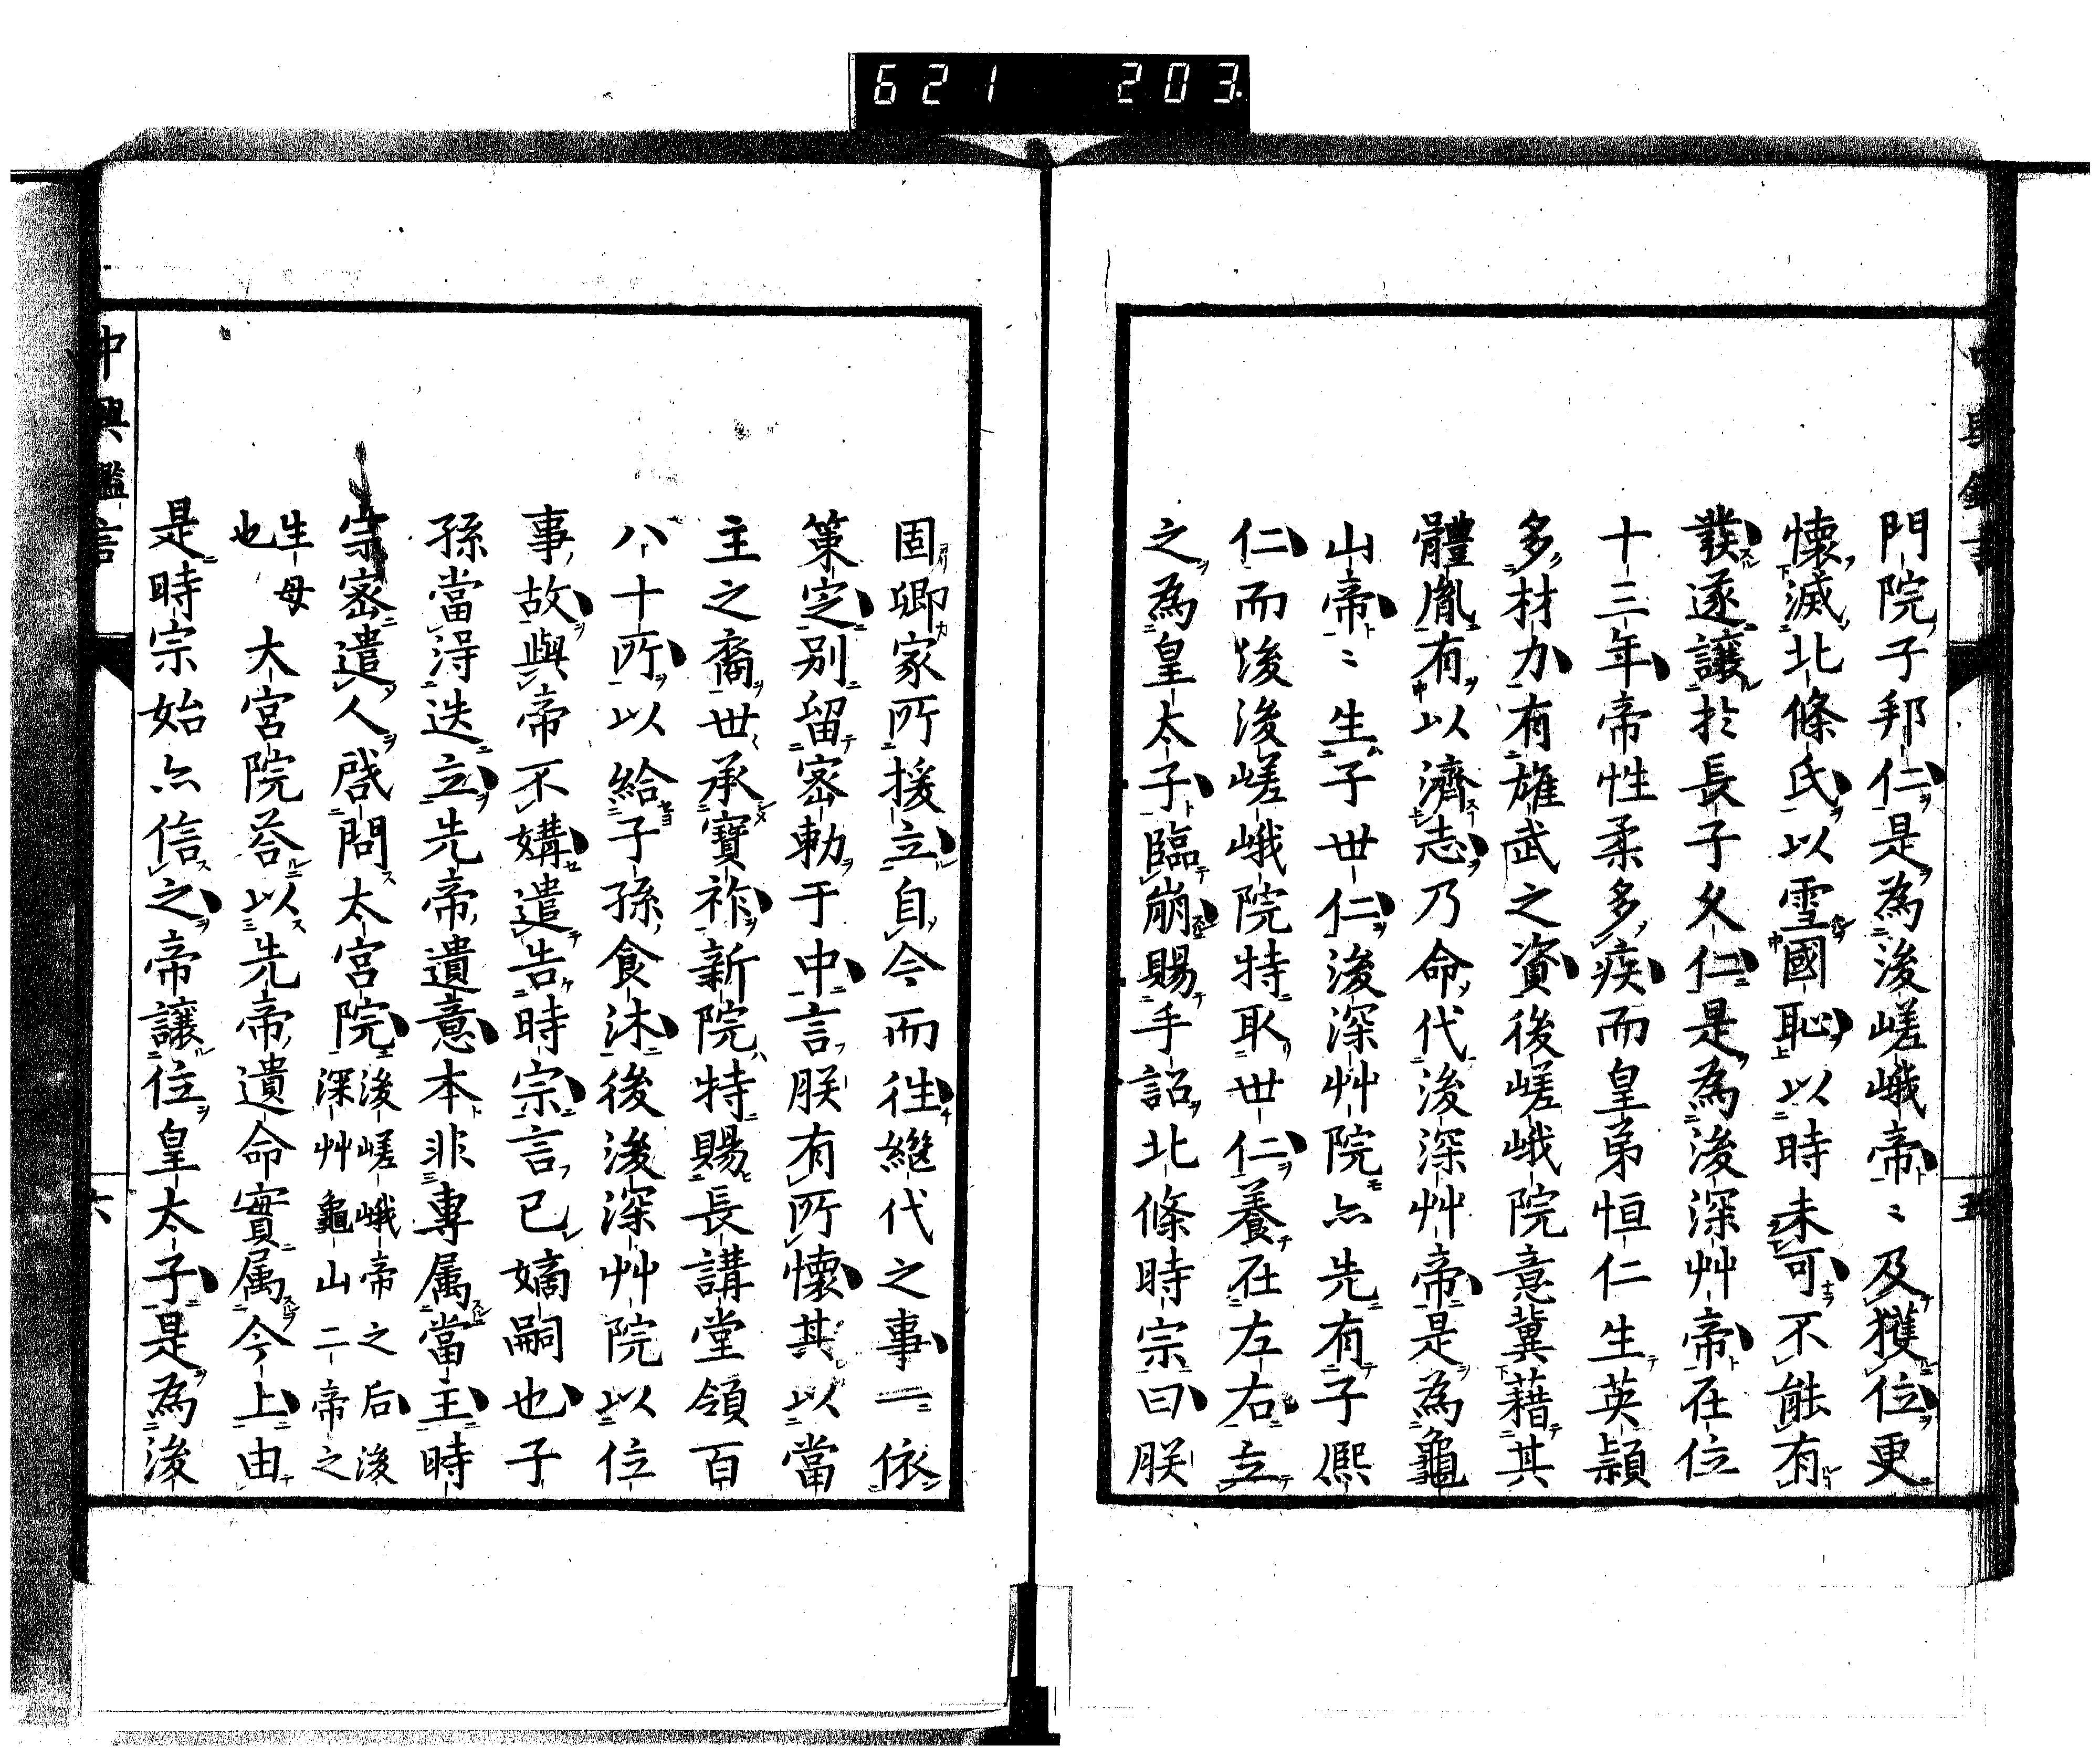 621 203
中興鑑言
五
門院子邦仁是為後嵯峨帝〻及獲位更
懷滅北條氏以雪國恥以時未可不能有
發遂讓於長子久仁是為後深艸帝在位
十三年帝性柔多疾而皇弟恒仁生英穎
多材力有雄武之資後嵯峨院意冀藉其
體胤有以濟志乃命代後深艸帝是為龜
山帝〻生子世仁後深艸院亦先有子熈
仁而後後嵯峨院特取世仁養在左右立
之為皇太子臨崩賜手詔北條時宗曰朕
固卿家所援立自今而徃繼代之事一依
策定別留密勅于中言朕有所懷其以當
主之裔世承寶祚新院特賜長講堂領百
八十所以給子孫食沐後後深艸院以位
事故與帝不媾遣告時宗言已嫡嗣也子
孫當得迭立先帝遺意本非專属當主時
宗密遣人啓問太宮院後嵯峨帝之后後
深艸龜山二帝之
生母
也
大宮院荅以先帝遺命實属今上由
是時宗始亦信之帝讓位皇太子是為後
中興鑑言
六